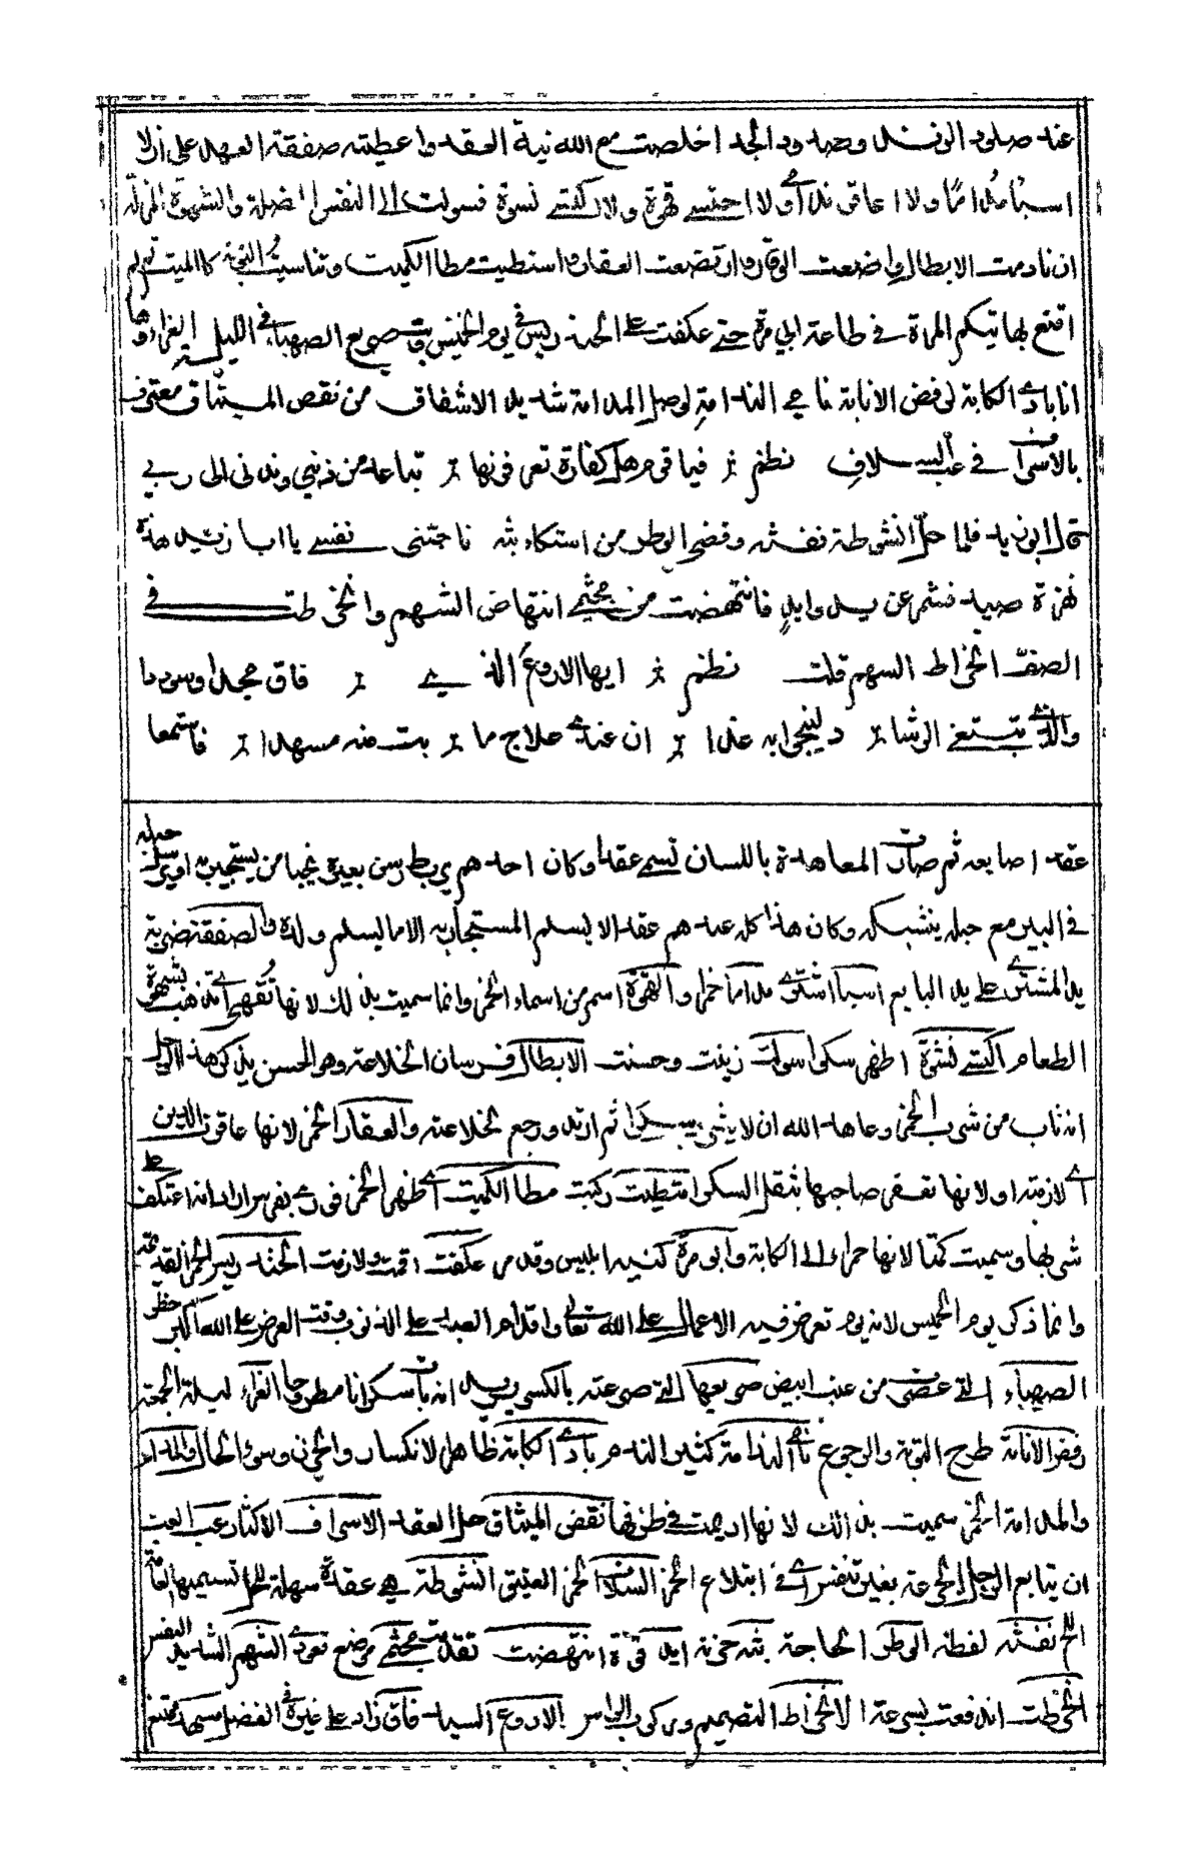 عند صلود الزند وصدود الجد اخلصت مع الله نية العقد واعطيته صفقة العهد على ان لا
اسبأ مداما ولا اعاقر ندامى ولا احتسى قهوة ولا اكتسى نشوة فسولت الى النفس المضلة والشهوة المزلة
ان نادمت الابطال واضعت الوقار وارتضعت العقار وامتطيت مطا الكميت وتناسيت التوبة كالميت ثم لم
اقنع بهاتيكم المرة في طاعة ابي مرة حتى عكفت على الخندريس في يوم الخميس وبت صريع الصهباء في الليلة الغراء وها
انا بادى الكابة لرفض الانابة نامي الندامة لوصل المدامة شديد الاشفاق من نقض الميثاق معترف
بالاسراف في عب السلاف نظم فيا قوم هل كفارة تعرفونها تباعد من ذنبي وتدني الى ربي
قال ابو زيد فلما حل انشوطة نفثه وقضى الوطر من اشتكاء بثه ناجتني نفسي يا ابا زيد هذه
نهزة صيد فشمر عن يد وايد فانتهضت من مجثمي انتهاض الشهم وانخرطت في
الصف انخراط السهم وقلت نظم ايها الاروع الذي فاق مجدا وسوددا
والذي يبتغى الرشاد لينجو به غدا ان عندي علاج ما بت منه مسهدا فاستمعها
عقد اصابعه ثم صارت المعاهدة باللسان تسمى عقدا وكان احدهم يربط رسن بعيره بخباء من يستجير به او يرسل حبله
في البير مع حبله يتشبكه وكان هذا كله عندهم عقد الا يسلم المستجار به الا ما يسلم ولده والصفقة ضربة
يد المشتري على يد البايع اسبأ اشترى مداما خمرا والقهوة اسم من اسماء الخمر وانما سميت بذلك لانها تقهي اي تذهب بشهوة
الطعام اكتسى نشوة اظهر سكرا سولت زينت وحسنت الابطال فرسان الخلاعة وهو المحسن يذكر هذا الرجل
انه تاب من شرب الخمر وعاهد الله ان لا يشرب سكرا ثم ارتد ورجع لخلاعته والعقار الخمر لانها عاقرت الدن
اي لازمته او لانها تعقر صاحبها بثقل السكر امتطيت ركبت مطا الكميت اي ظهر الخمر فورى بفرس اراد انه اعتكف على
شربها وسميت كميتا لانها حمراء الى الكابة وابو مرة كنية ابليس وقد مر عكفت اقمت ولازمت الخندريس الخمر القديمة
وانما ذكر يوم الخميس لانه يوم تعرض فيه الاعمال على الله تعالى واقدام العبد على الذنوب وقت العرض على الله اكبر خطر
الصهباء التي عصرت من عنب ابيض صريعها التي صرعته بالكسر يريد انه بات سكرانا مطروحا الغراء ليلة الجمعة
رفض الانابة طرح التوبة والرجوع نامي الندامة كثير الندم بادي الكابة ظاهر الانكسار والحزن وسوء الحال
والمدامة الخمر سميت بذلك لانها اديمت في ظرفها نقض الميثاق حل العقد الاسراف الاكثار عب العب
ان يتابع الرجل الجرعة بغير تنفس اي في ابتلاع الخمر السلاف الخمر العتيق انشوطة هي عقدة سهلة الحل تسميها العامة
نفثه لفظه الوطر الحاجة بثه حزنه ايد قوة انتهضت تقدمت مجثمي موضع قعودي الشهم الشديد النفس
انخرطت اندفعت بسرعة الانخراط التصميم وركوب الراس الاروع السيد فاق زاد على غيره في الفضل مسهدا يمتنع